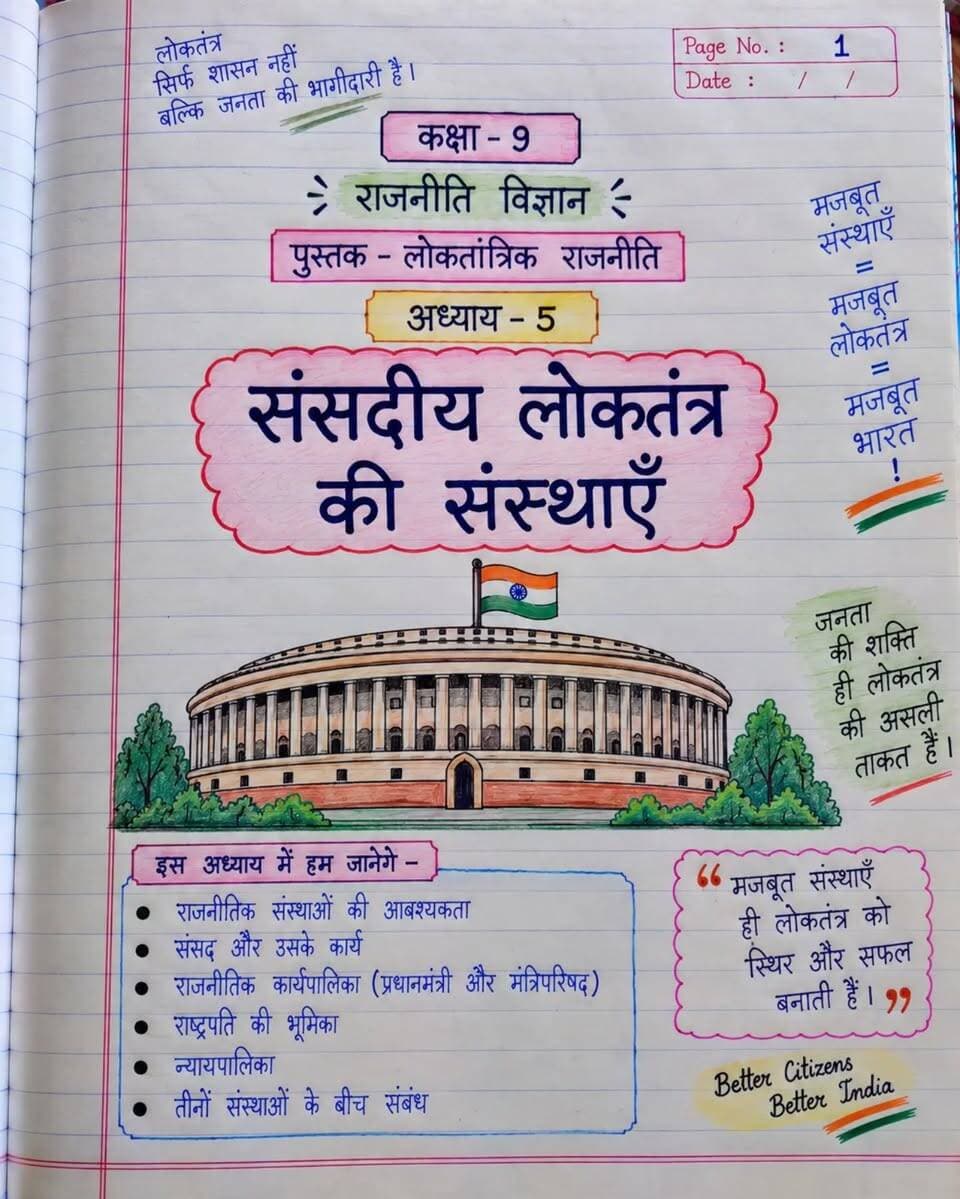 लोकतंत्र
सिर्फ शासन नहीं
बल्कि जनता की भागीदारी है।
Page No. : 1
Date : / /
कक्षा - 9
राजनीति विज्ञान
पुस्तक - लोकतांत्रिक राजनीति
अध्याय - 5
संसदीय लोकतंत्र
की संस्थाएँ
मजबूत
संस्थाएँ
=
मजबूत
लोकतंत्र
=
मजबूत
भारत
!
जनता
की शक्ति
ही लोकतंत्र
की असली
ताकत हैं।
इस अध्याय में हम जानेगे -
● राजनीतिक संस्थाओं की आबश्यकता
● संसद और उसके कार्य
● राजनीतिक कार्यपालिका (प्रधानमंत्री और मंत्रिपरिषद)
● राष्ट्रपति की भूमिका
● न्यायपालिका
● तीनों संस्थाओं के बीच संबंध
“ मजबूत संस्थाएँ
ही लोकतंत्र को
स्थिर और सफल
बनाती हैं। ”
Better Citizens
Better India